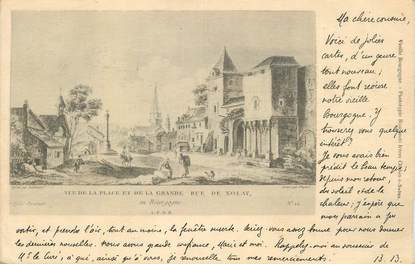 Ma chère cousine,
Voici de jolies
cartes, d'un genre
tout nouveau ;
elles font revivre
notre vieille
Bourgogne ! y
trouverez vous quelque
intérêt ?
Je vous avais bien
prédit le beau temps,
depuis mon retour,
du soleil et de la
chaleur ; j'espère que
mon parrain a pu
sortir, et prendre l'air, tout au moins, la fenêtre ouverte. Aurez-vous assez bonne pour nous donner
les dernières nouvelles. Nous avons grande confiance, Marie et moi. Rappelez-moi au souvenir de
Mr le Curé ; à qui, ainsi qu'à vous, je renouvelle tous mes remerciements. B. B.
VUE DE LA PLACE ET DE LA GRANDE RUE DE NOLAY,
en Bourgogne
A.P.D.R.
N° 12
Vieille Bourgogne